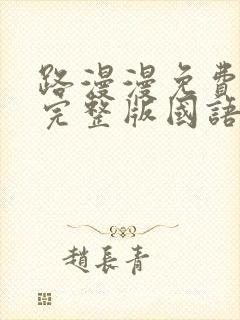 路漫漫免費
完整版國語
趙長青